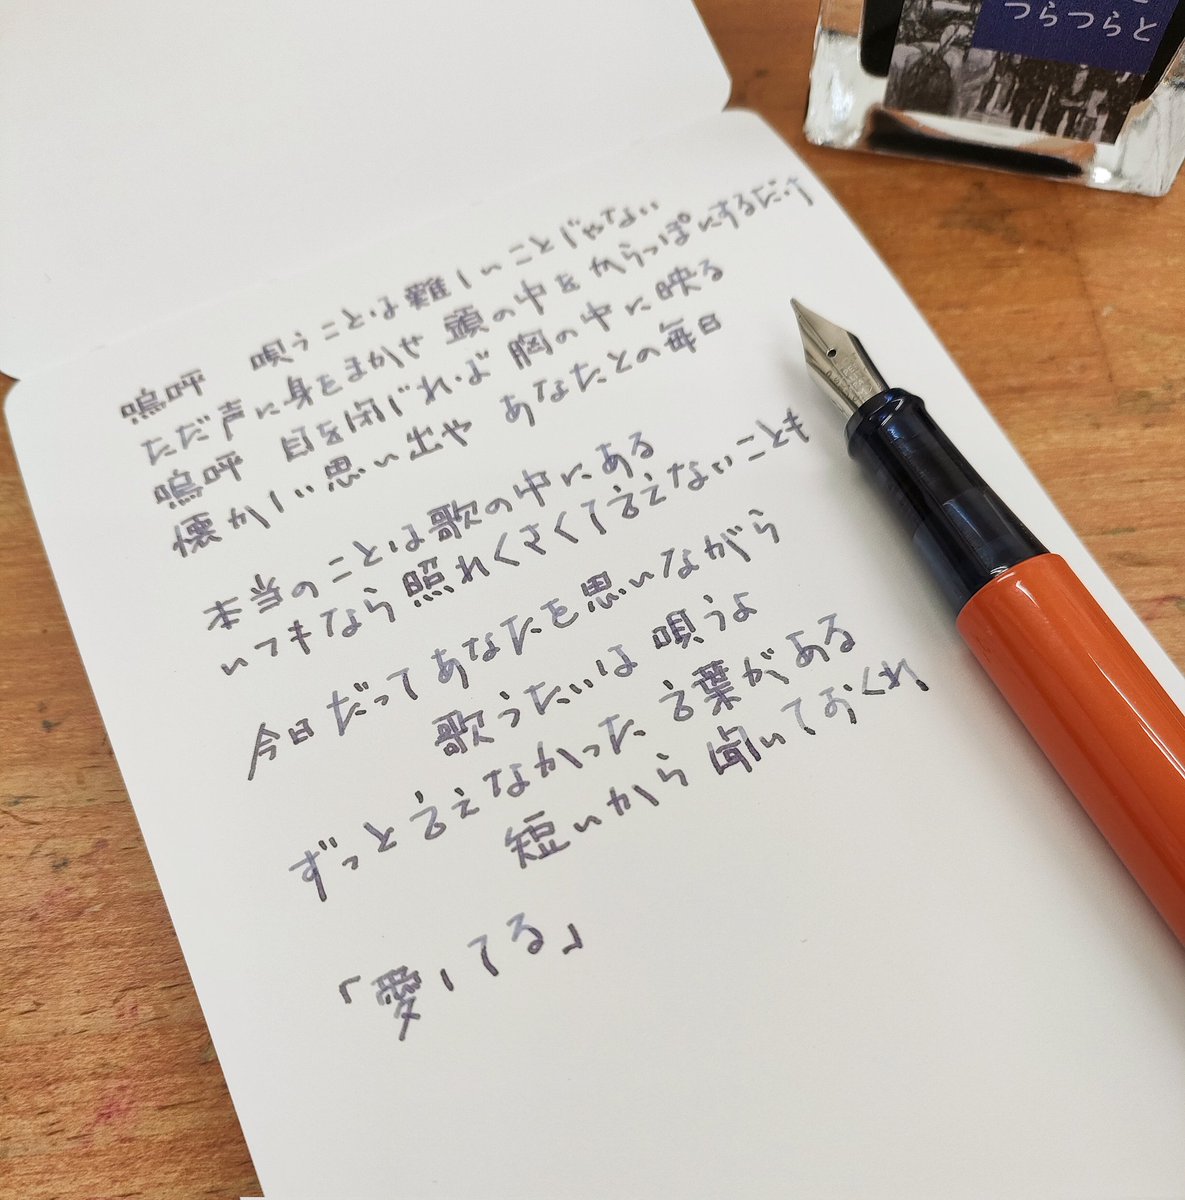 つらつらと
嗚呼 唄うことは難しいことじゃない
ただ声に身をまかせ 頭の中をからっぽにするだけ
嗚呼 目を閉じれば 胸の中に映る
懐かしい思い出や あなたとの毎日
本当のことは歌の中にある
いつもなら照れくさくて言えないことも
今日だってあなたを思いながら
歌うたいは唄うよ
ずっと言えなかった言葉がある
短いから聞いておくれ
「愛してる」